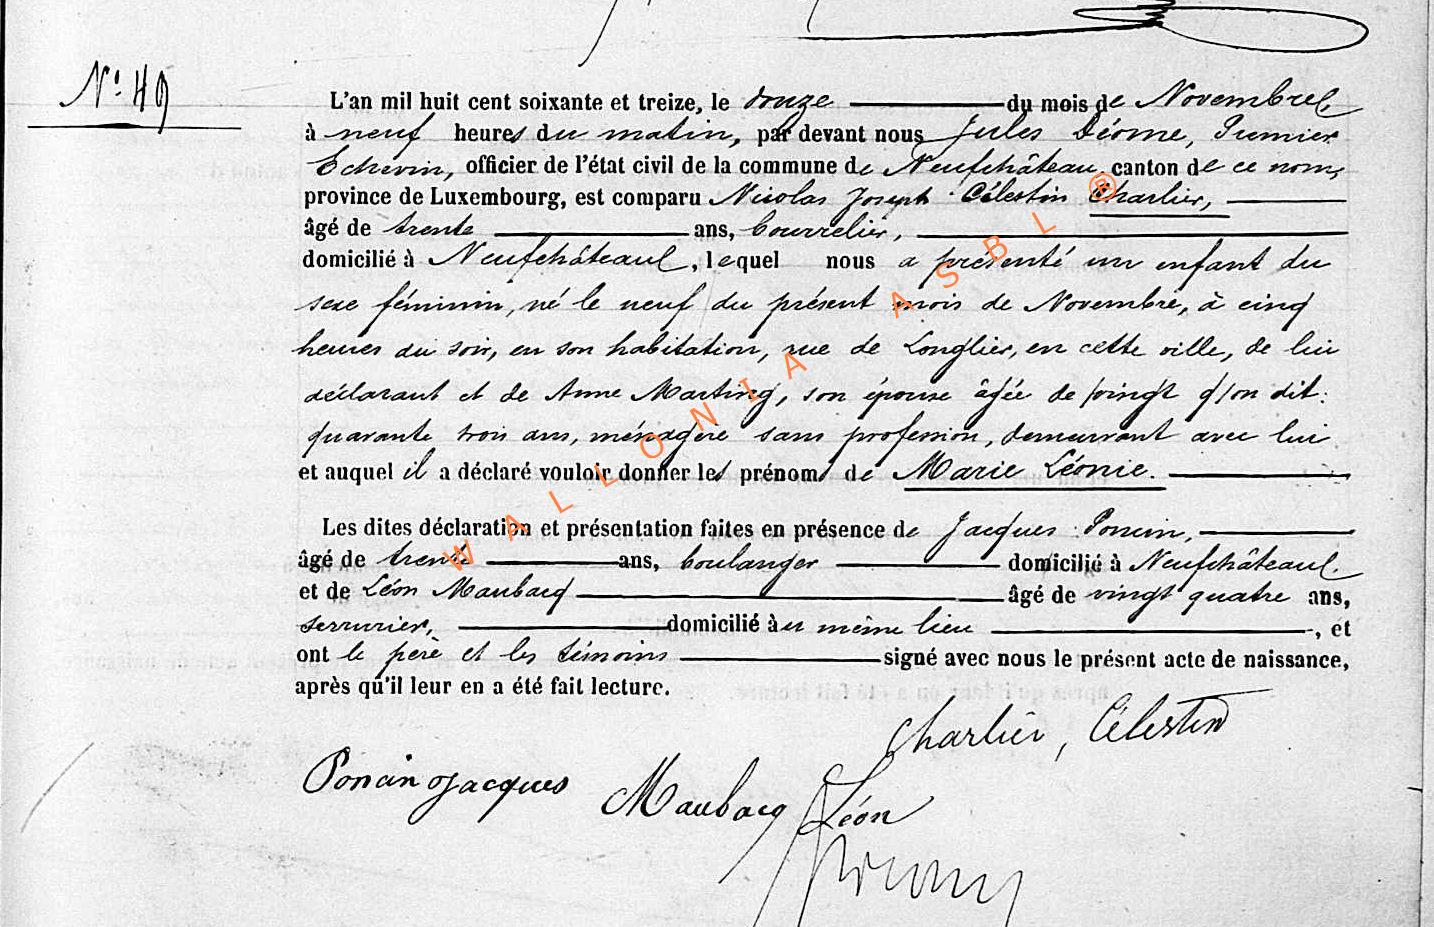 N° 49
L'an mil huit cent soixante et treize, le douze du mois de Novembre,
à neuf heures du matin, par devant nous Jules Déome, Premier
Echevin, officier de l'état civil de la commune de Neufchâteau, canton de ce nom,
province de Luxembourg, est comparu Nicolas Joseph Célestin Charlier,
âgé de trente ans, bourrelier,
domicilié à Neufchâteau, lequel nous a présenté un enfant du
sexe féminin, né le neuf du présent mois de Novembre, à cinq
heures du soir, en son habitation, rue de Longlier, en cette ville, de lui
déclarant et de Anne Martinq, son épouse âgée de vingt on dit:
quarante trois ans, ménagère sans profession, demeurant avec lui
et auquel il a déclaré vouloir donner les prénoms de Marie Léonie.
Les dites déclaration et présentation faites en présence de Jacques Poncin,
âgé de trente ans, boulanger domicilié à Neufchâteau
et de Léon Maubacq âgé de vingt quatre ans,
serrurier, domicilié au même lieu, et
ont le père et les témoins signé avec nous le présent acte de naissance,
après qu'il leur en a été fait lecture.
Charlier, Célestin
Poncin Jacques Maubacq Léon
WALLONIA ASBL ®